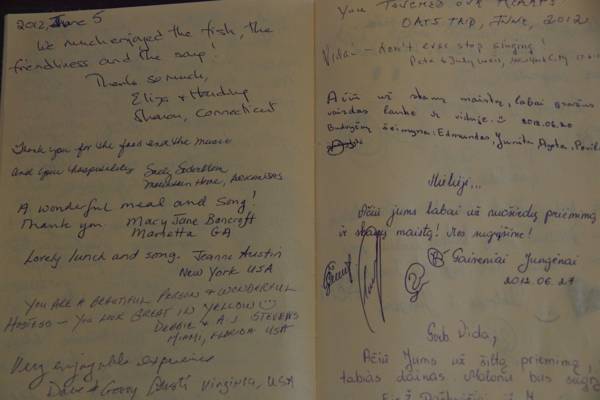 2012, June 5
We much enjoyed the fish, the
friendliness and the song!
Thanks so much,
Eliza + Harding
Sharon, Connecticut
Thank you for the food and the music
and your hospitality Sally
Mountain Home, ARKANSAS
A wonderful meal and song!
Thank you. Macy Jane Bancroft
Marietta GA
Lovely lunch and song. Jeanne Austin
New York USA
YOU ARE A BEAUTIFUL PERSON & WONDERFUL
HOSTESS - YOU LOOK GREAT IN YELLOW
DEBBIE & A.J. STEVENS
MIAMI, FLORIDA USA
Very enjoyable experience
Dave & Gerry Virginia, USA
YOU TOUCHED OUR HEARTS
OATS TRIP, JUNE, 2012
Vida - don't ever stop singing!
Pete & Judy New York City
Ačiū už skanų maistą, labai gražus
vaizdas lauke ir viduje. 2012.06.20
šeimyna: Edmundas, Junita, Agota,
Mieliji...
Ačiū jums labai už nuoširdų priėmimą
ir skanų maistą! Mes sugrįšime!
Gaireniai Jungėnai
2012.06.21
Gerb. Vida,
Ačiū Jums už šiltą priėmimą,
dainas. Malonu bus